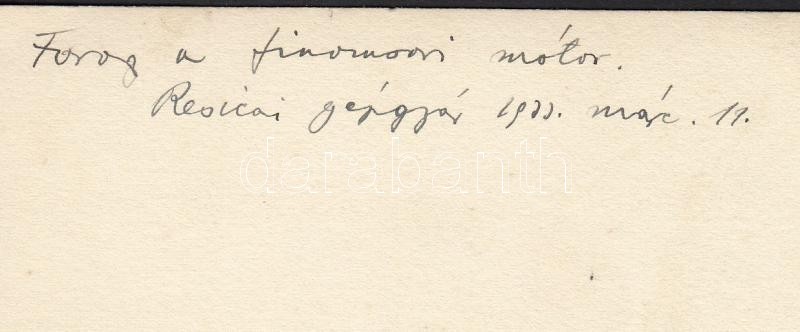 Forog a finomsori mótor.
Resicai gépgyár 1933. márc. 11.
darabanth